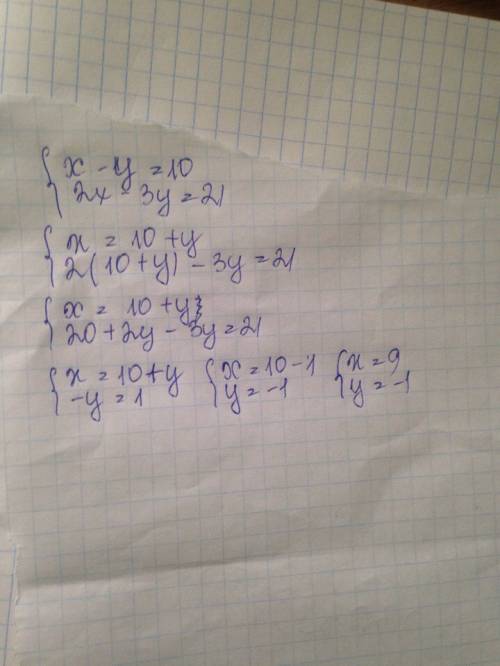 x - y = 10
2x - 3y = 21
x = 10 + y
2(10 + y) - 3y = 21
x = 10 + y
20 + 2y - 3y = 21
x = 10 + y x = 10 - 1 x = 9
-y = 1 y = -1 y = -1